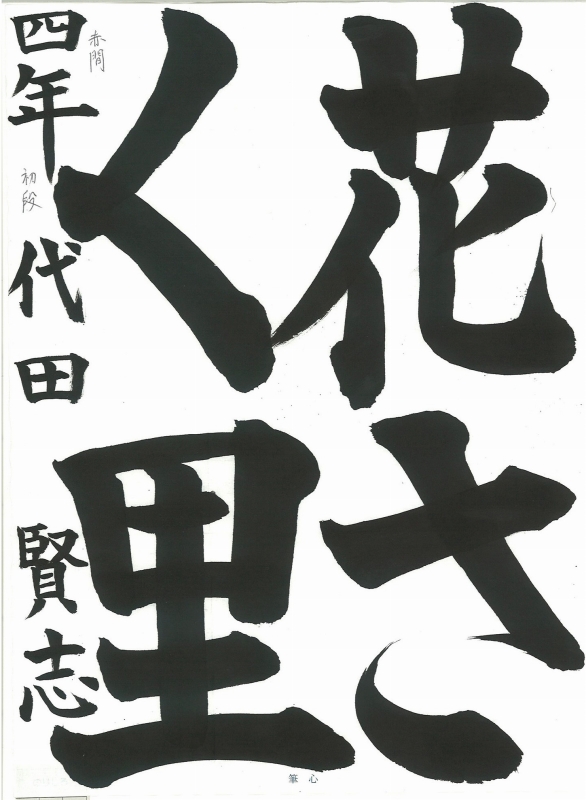 花さ
く里
四年 代田 賢志
赤間
初段
心筆